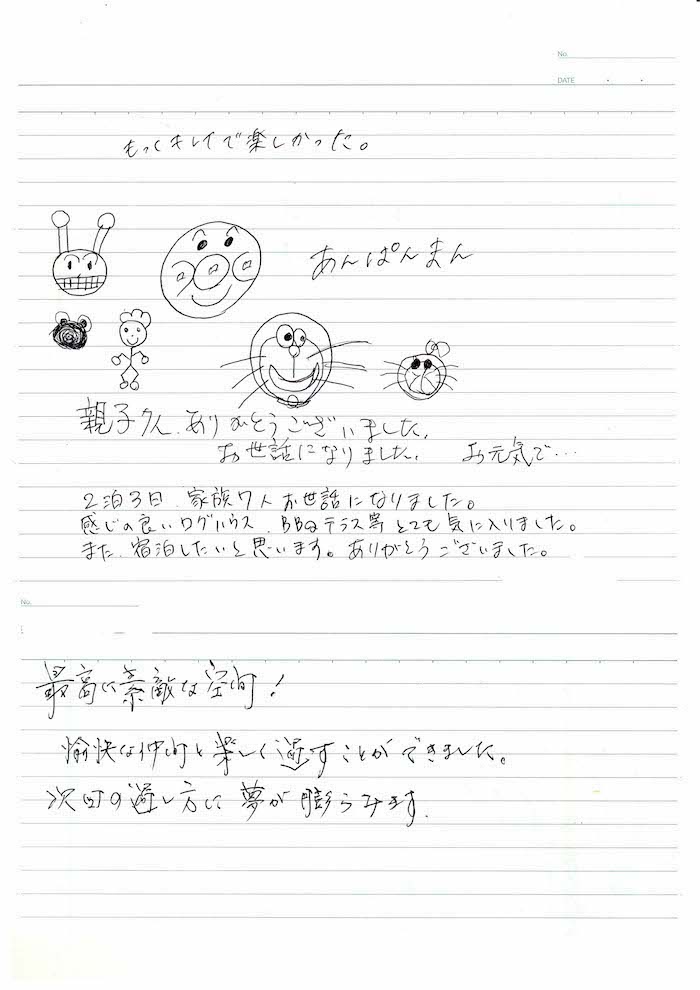 No.
DATE
もっくキレイで楽しかった。
あんぱんまん
親子9人、ありがとうございました。
お世話になりました。 お元気で…
2泊3日、家族7人お世話になりました。
感じの良いログハウス、BBQテラス等とても気に入りました。
また、宿泊したいと思います。ありがとうございました。
No.
最高に素敵な空間!
愉快な仲間と楽しく過すことができました。
次回の過し方に夢が膨らみます.